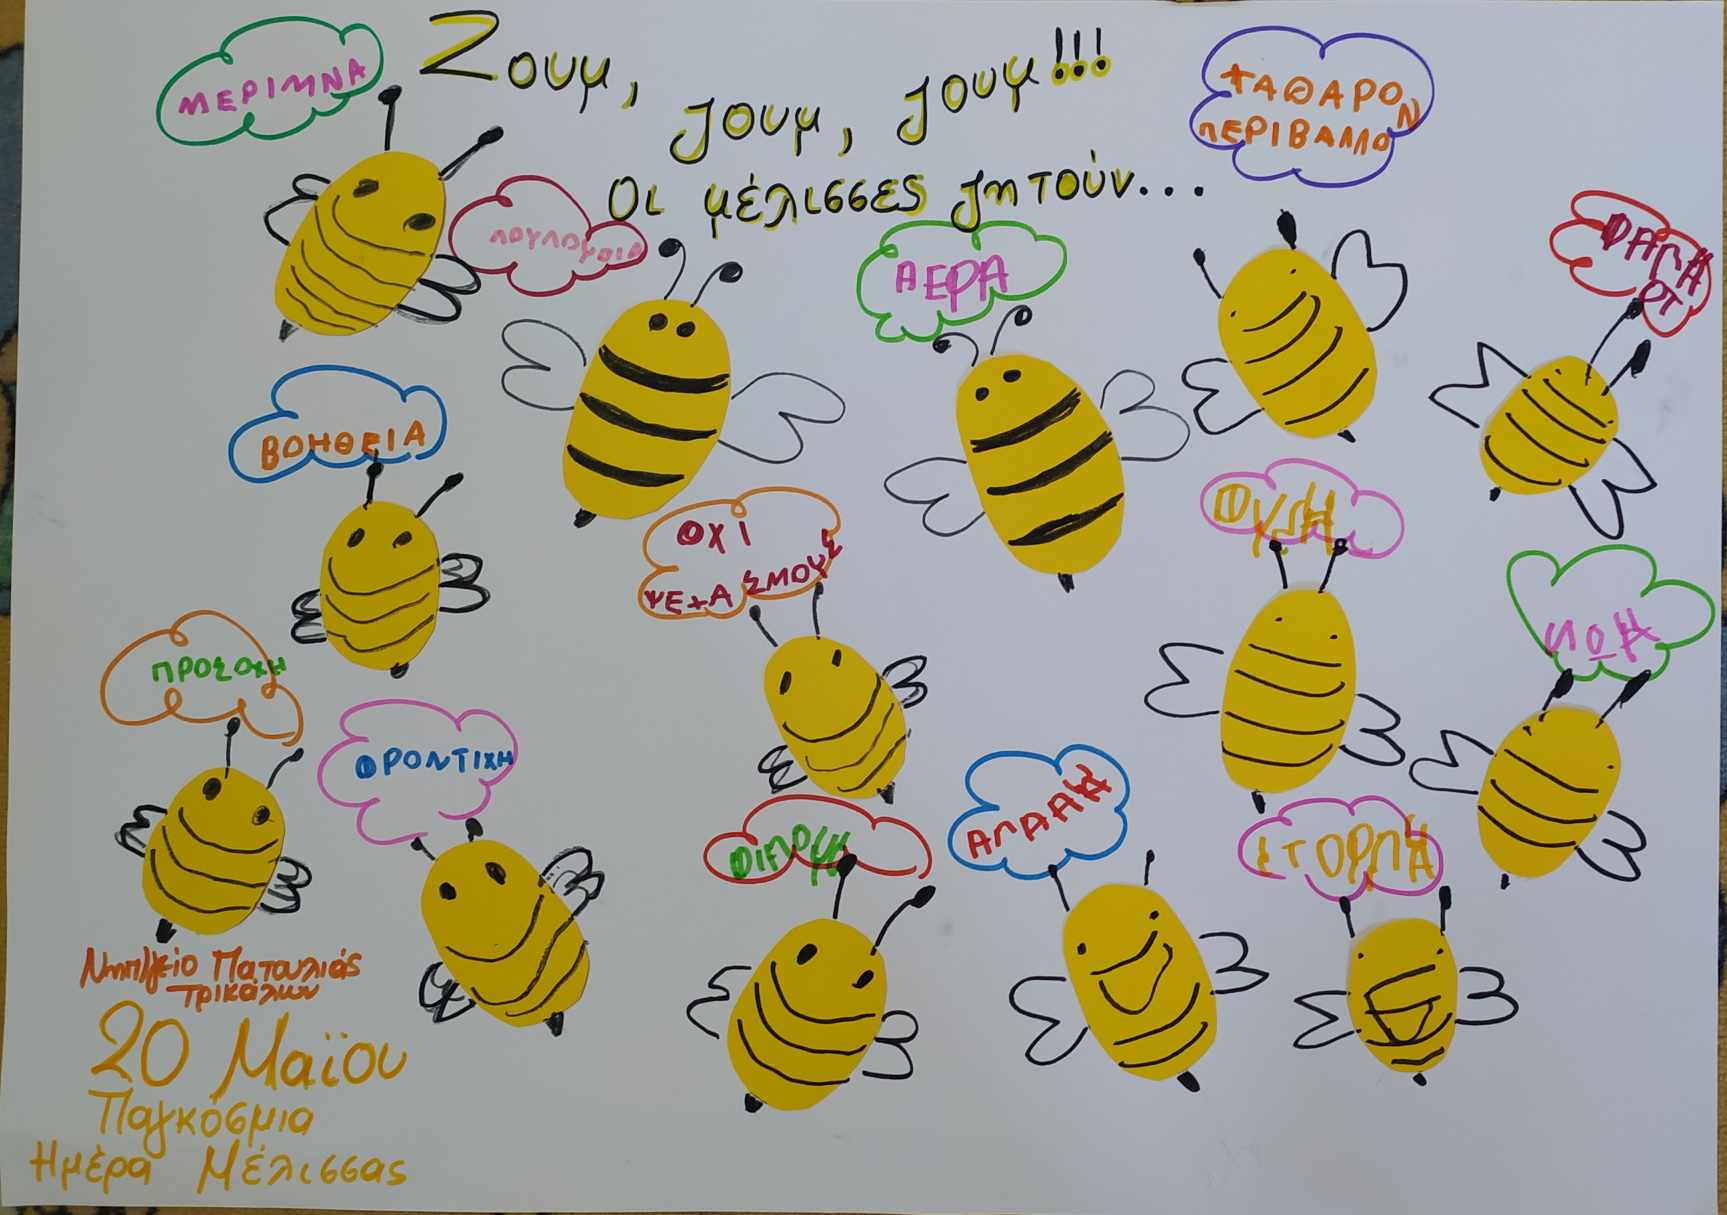 Ζουμ, ζουμ, ζουμ!!!
Οι μέλισσες ζητούν...
ΜΕΡΙΜΝΑ
ΛΟΥΛΟΥΔΙΑ
ΑΕΡΑ
ΚΑΘΑΡΟ
ΠΕΡΙΒΑΛΛΟΝ
ΒΟΗΘΕΙΑ
ΟΧΙ
ΨΕΚΑΣΜΟΥΣ
ΦΥΣΗ
ΠΡΟΣΟΧΗ
ΦΡΟΝΤΙΧΗ
ΑΓΑΠΗ
ΣΤΟΡΓΗ
Νηπ/γείο Πατουλιάς
Τρικάλων
20 Μαΐου
Παγκόσμια
Ημέρα Μέλισσας